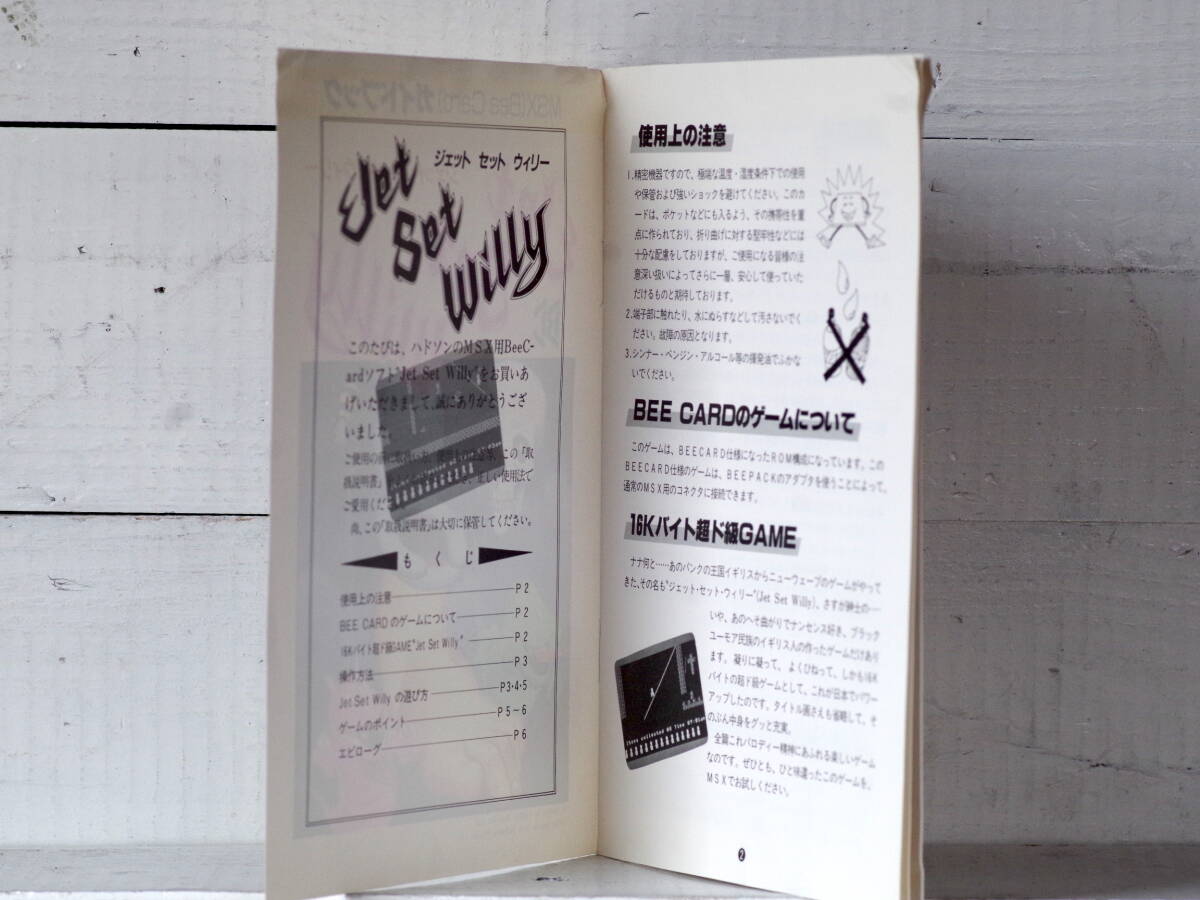 MSX(Bee Card)ガイドブック
ジェット セット ウィリー
Jet
Set
Willy
このたびは、ハドソンのMSX用BeeC-
ardソフト"Jet Set Willy"をお買いあ
げいただきまして、誠にありがとうござ
いました。
ご使用の前に
この「取
扱説明書」
正しい使用法で
ご愛用くだ
尚、この「取扱説明書」は大切に保管してください。
もくじ
使用上の注意 P2
BEE CARD のゲームについて P2
16Kバイト超ド級GAME"Jet Set Willy" P2
操作方法 P3
Jet Set Willy の遊び方 P3・4・5
ゲームのポイント P5〜6
エピローグ P6
使用上の注意
1.精密機器ですので、極端な温度・湿度条件下での使用
や保管および強いショックを避けてください。このカ
ードは、ポケットなどにも入るよう、その携帯性を重
点に作られており、折り曲げに対する堅牢性などには
十分な配慮をしておりますが、ご使用になる皆様の注
意深い扱いによってさらに一層、安心して使っていた
だけるものと期待しております。
2.端子部に触れたり、水にぬらすなどして汚さないでく
ださい。故障の原因となります。
3.シンナー・ベンジン・アルコール等の揮発油でふかな
いでください。
BEE CARDのゲームについて
このゲームは、BEECARD仕様になったROM構成になっています。この
BEECARD仕様のゲームは、BEEPACKのアダプタを使うことによって、
通常のMSX用のコネクタに接続できます。
16Kバイト超ド級GAME
ナナ何と……あのパンクの王国イギリスからニューウェーブのゲームがやって
きた、その名も"ジェット・セット・ウィリー"(Jet Set Willy)、さすが紳士の…
いや、あのへそ曲がりでナンセンス好き、ブラック
ユーモア民族のイギリス人の作ったゲームだけあり
ます。凝りに凝って、よくひねって、しかも16K
バイトの超ド級ゲームとして、これが日本でパワー
アップしたのです。タイトル画さえも省略して、そ
のぶん中身をグッと充実。
全篇これパロディー精神にあふれる楽しいゲーム
なのです。ぜひとも、ひと味違ったこのゲームを、
MSXでお試しください。
Items collected
2